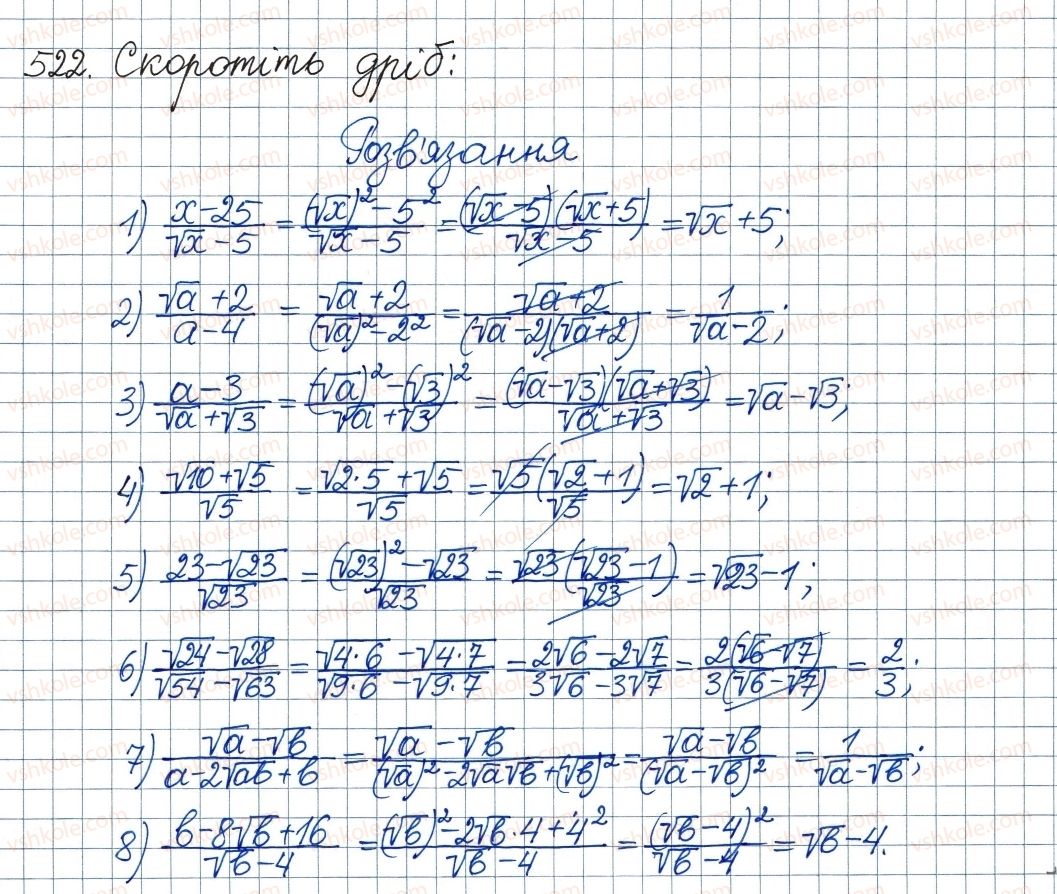 522. Скоротіть дріб:
Розв'язання
1) (x-25)/(√x-5) = ((√x)²-5²)/(√x-5) = ((√x-5)(√x+5))/(√x-5) = √x+5;
2) (√a+2)/(a-4) = (√a+2)/((√a)²-2²) = (√a+2)/((√a-2)(√a+2)) = 1/(√a-2);
3) (a-3)/(√a+√3) = ((√a)²-(√3)²)/(√a+√3) = ((√a-√3)(√a+√3))/(√a+√3) = √a-√3;
4) (√10+√5)/√5 = (√2·5+√5)/√5 = (√5(√2+1))/√5 = √2+1;
5) (23-√23)/√23 = ((√23)²-√23)/√23 = (√23(√23-1))/√23 = √23-1;
6) (√24-√28)/(√54-√63) = (√4·6-√4·7)/(√9·6-√9·7) = (2√6-2√7)/(3√6-3√7) = (2(√6-√7))/(3(√6-√7)) = 2/3;
7) (√a-√b)/(a-2√ab+b) = (√a-√b)/((√a)²-2√a√b+(√b)²) = (√a-√b)/(√a-√b)² = 1/(√a-√b);
8) (b-8√b+16)/(√b-4) = ((√b)²-2√b·4+4²)/(√b-4) = (√b-4)²/(√b-4) = √b-4.